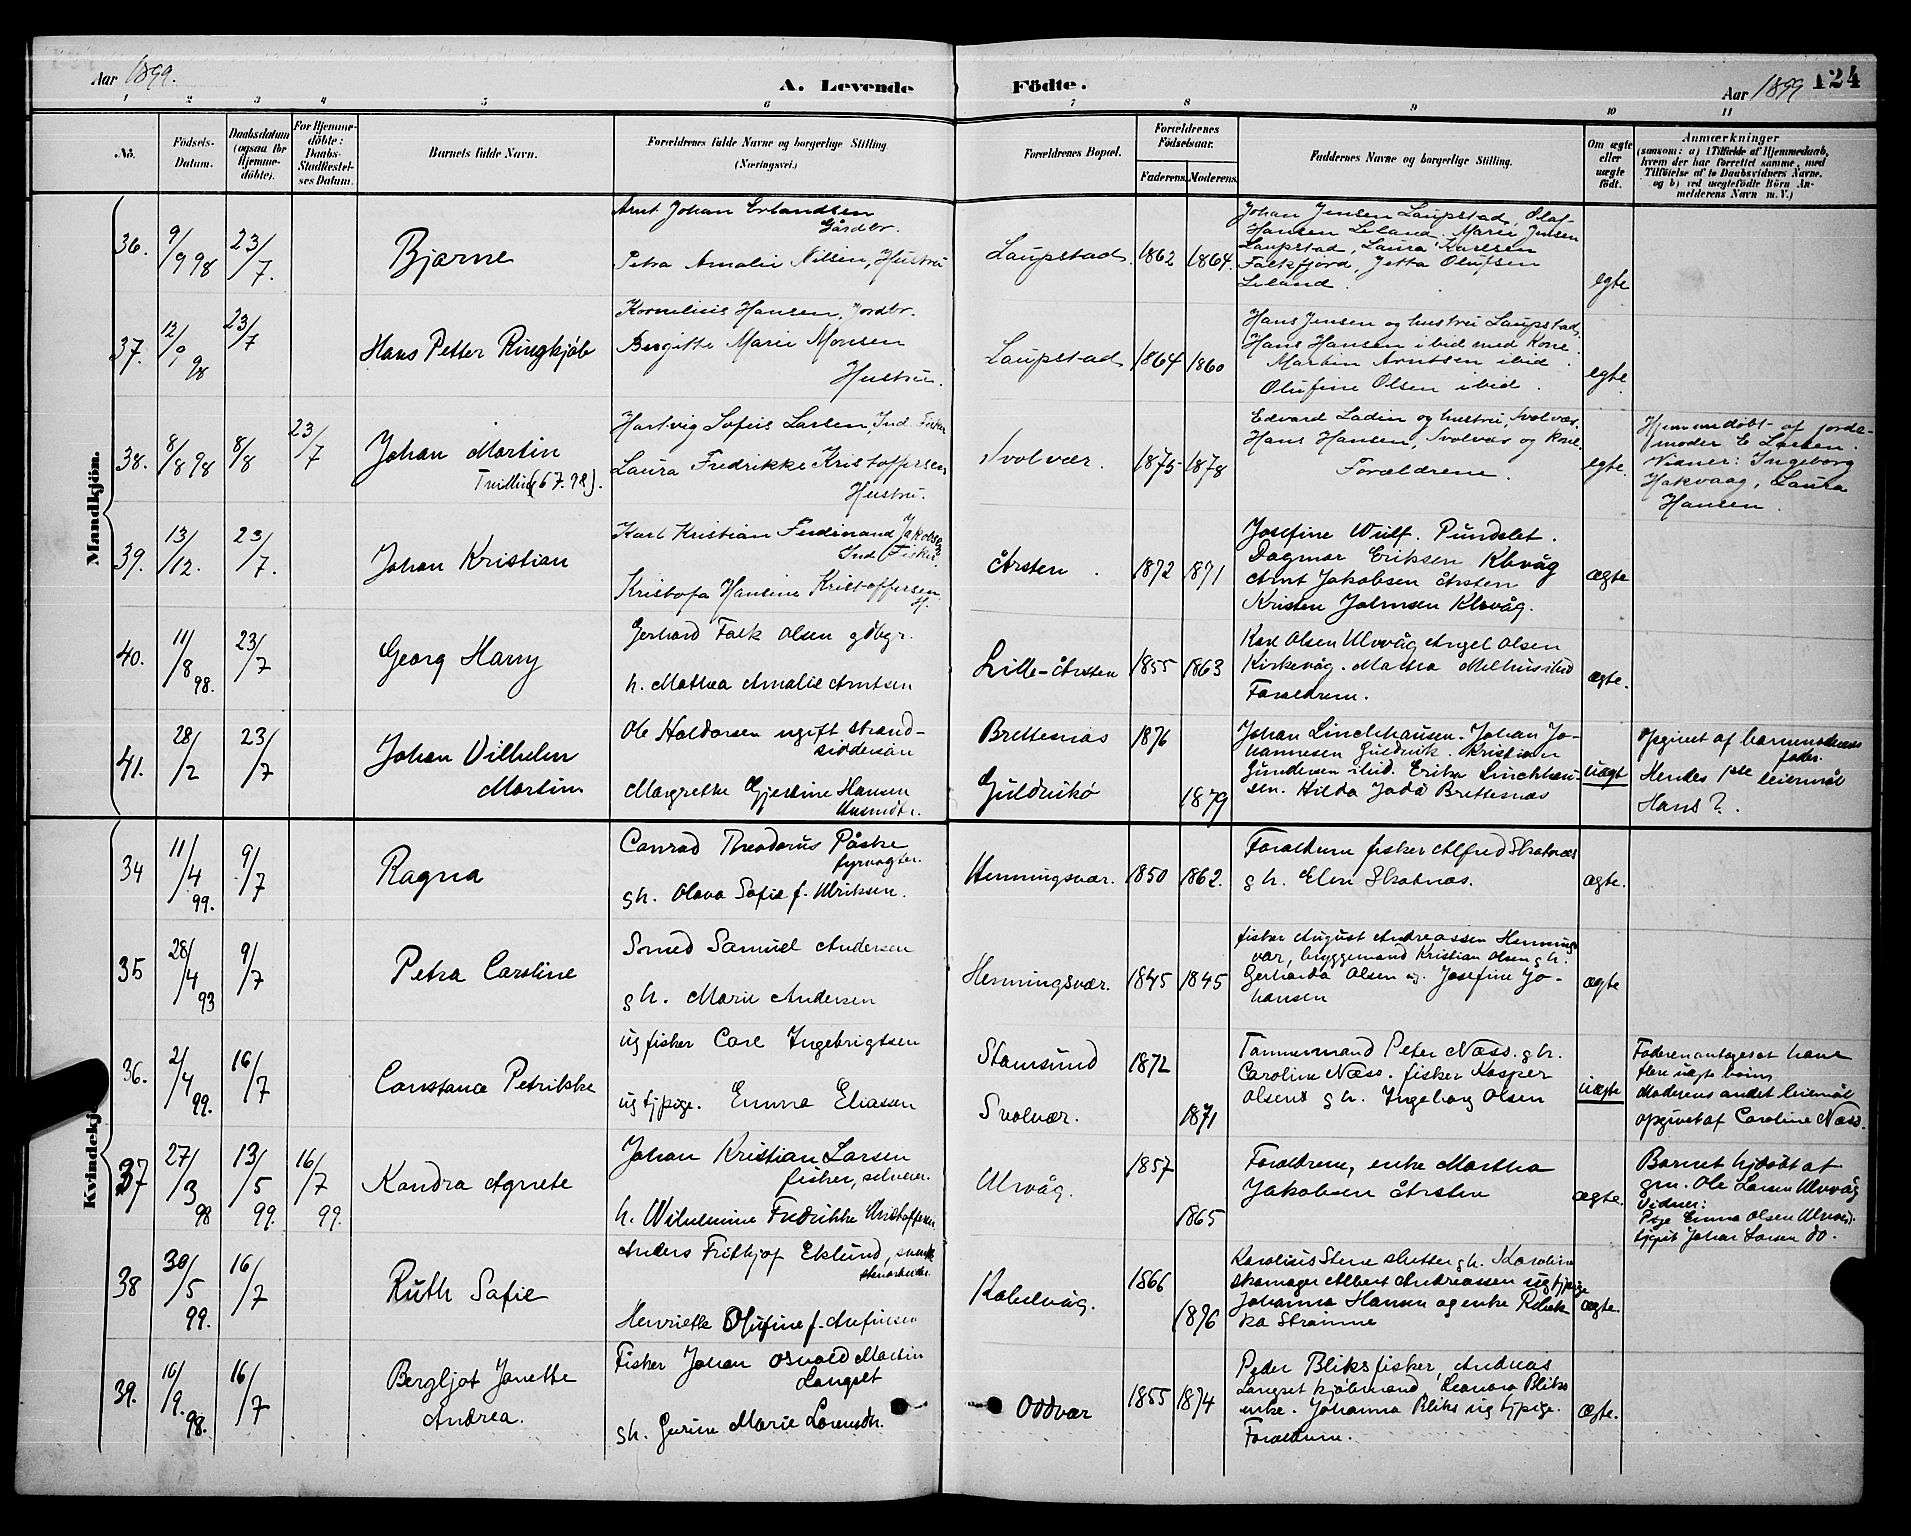 Aar 1899.
A. Levende Födte.
Aar 1899
124
1 2 3 4 5 6 7 8 9 10 11
No.
Födsels-
Datum.
Daabsdatum
(ogsaa for
Hjemme-
döbte).
For Hjemme-
döbte:
Daabs-
Stadfæstel-
ses Datum.
Barnets fulde Navn.
Forældrenes fulde Navne og borgerlige Stilling
(Næringsvei.)
Forældrenes Bopæl.
Forældrenes
Födselsaar.
Faderens. Moderens.
Faddernes Navne og borgerlige Stilling.
Om ægte
eller
uægte
födt.
Anmærkninger
(saasom: a) i Tilfælde af Hjemmedaab,
hvem der har forrettet samme, med
Tilföielse af to Daabsvidners Navne.
og b) ved uægtefödte Börn An-
melderens Navn m. V.)
Mandkjön.
36. 9/9 98 23/7. Bjarne
Arnt Johan Erlandsen
Gårdbr.
Petra Amalie Nilsen, Hustru
Laupstad. 1862 1864.
Johan Jensen Laupstad, Olaf
Hansen Leland. Marie Jensen
Laupstad, Laura Karlsen
Falkfjord, Jetta Olufsen
Leland.
egte
37. 12/9 98 23/7 Hans Petter Ringkjöb
Kornelius Hansen, Jordbr.
Birgitte Marie Monsen
Hustru.
Laupstad 1864 1860
Hans Jensen og hustru Laupstad,
Hans Hansen ibid med Kone.
Martin Arntsen ibid
Olufine Olsen ibid.
egte.
38. 8/8 98 8/8 23/7 Johan Martin
Tvilling (67.98).
Hartvig Sofus Larsen, Ind. Fisker
Laura Fredrikke Kristoffersen
Hustru.
Svolvær. 1875 1878
Edvard Ladin og hustru, Svolvær,
Hans Hansen, Svolvær og Kone.
Forældrene.
egte.
Hjemmedöbt af jorde-
moder E Larsen.
Vidner: Ingeborg
Hakvaag, Laura
Hansen.
39. 13/12. 23/7. Johan Kristian
Karl Kristian Ferdinand Jakobsen
Ind. Fisker
Kristofa Hansine Kristoffersen
H.
Årsten. 1872 1871
Josefine Wulf. Pundslet.
Dagmar Eriksen
Arnt Jakobsen Årsten
Kristen Johnsen
ægte
40. 11/8 98. 23/7 Georg Harry
Gerhard Falk Olsen gdbgr.
h. Mathea Amalie Arntsen
Lille-Årsten 1855 1863
Karl Olsen Ulvvåg Angel Olsen
Kirkevåg. Martha Melhus ibid
Forældrene.
ægte.
41. 28/2 23/7 Johan Vilhelm
Martin
Ole Haldorsen ugift strand-
siddersön
Margrethe Gjertine Hansen
Brettesnæs 1876
Guldvikö 1879
Johan Linchhausen. Johan Jo-
hannesen Guldvik. Kristian
Gundersen ibid. Erika Linchhau-
sen. Hilda Brettesnæs
uægt
opgivet af barnemoderens
fader.
Hendes 1ste leiermål
Hans?.
Kvindekj
34 11/4 99. 9/7 Ragna
Conrad Theodorus Påske
fyrvogter.
gh. Olava Sofie f. Ulriksen.
Henningsvær. 1850 1862.
Forældrene fisker Alfred Skotnæs
gh. Elen Skotnæs.
ægte.
35 28/4 93 9/7 Petra Caroline
Smed Samuel Andersen
gh. Marie Andersen
Henningsvær. 1845 1845
fisker August Andreassen Hennings
vær, bryggemand Kristian Olsen gh.
Gerharda Olsen ug. Josefine Jo-
hansen
ægte
36. 2/4 99. 16/7 Constance Petrikke
ug fisker Carl Ingebrigtsen
ug tjpige. Emma Eliassen
Stamsund 1872
Svolvær. 1871
Tømmermand Peter Næss. gh.
Caroline Næss. fisker Kasper
Olsen gh. Ingeborg Olsen
uægte
Faderen antages at have
flere uægte børn,
Moderens andet leiermål
opgivet af Caroline Næss.
37 27/3 98 13/5 99. 16/7 99. Kandra Agnete
Johan Kristian Larsen
fisker, selveier.
h. Wilhelmine Fredrikke Kristoffersen
Ulvvåg. 1857 1865
Forældrene, enke Martha
Jakobsen Årsten
ægte.
Barnet hjdöbt af
gm. Ole Larsen Ulvvåg
Vidner:
Pige Emma Olsen
Johan Larsen do.
38 30/5 99. 16/7 Ruth Sofie
Anders Frithjof Eklund, svensk
stenarbeider.
Henriette Olufine f. Anfinsen
Kabelvåg. 1866 1876
Karolius Stene slutter gh. Karoline
skomager Albert Andreassen ug tjpige
Johanna Hansen og enke Rebek
ka Strømme
ægte.
39. 10/9. 98. 16/7 Bergljot Janette
Andrea.
Fisker Johan Osvald Martin
Langset
gh. Gurine Marie Lorentsdtr.
Oddvær 1855 1874
Peder Bliks fisker, Andreas
Langset kjöbmand, Leonora Bliks
enke. Johanna Bliks ug tjpige.
Forældrene.
ægte.